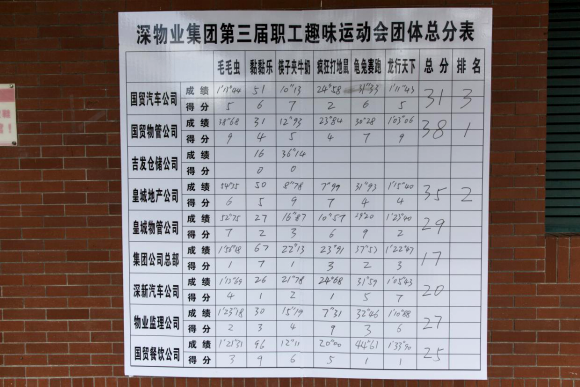 深物业集团第三届职工趣味运动会团体总分表
毛毛虫 黏黏乐 筷子夹牛奶 疯狂打地鼠 龟兔赛跑 龙行天下 总分 排名
国贸汽车公司 成绩 1'11"44 51 10"13 24"58 31"33 1'11"43 31 3
得分 5 6 7 2 6 5
国贸物管公司 成绩 38"68 31 12"93 23"84 30"28 1'03"06 38 1
得分 9 4 5 4 7 9
吉发仓储公司 成绩 16 36"14
得分 0 0
皇城地产公司 成绩 50 8"78 7"99 31"93 1'15"40 35 2
得分 6 5 9 7 4 4
皇城物管公司 成绩 52"75 27 16"87 10"57 1'23"40 29
得分 7 2 3 6 9 2
集团公司总部 成绩 67 22"13 23"91 37"53 1'22"47 17
得分 1 7 1 3 2 3
深新汽车公司 成绩 1'13"69 26 21"78 24"68 31"59 1'05"43 20
得分 4 1 2 1 5 7
物业监理公司 成绩 1'23"18 30 15"19 7"31 32"46 1'10"88 27
得分 2 3 4 9 3 6
国贸餐饮公司 成绩 1'21"21 96 12"11 20"00 25
得分 3 9 6 5 1 1